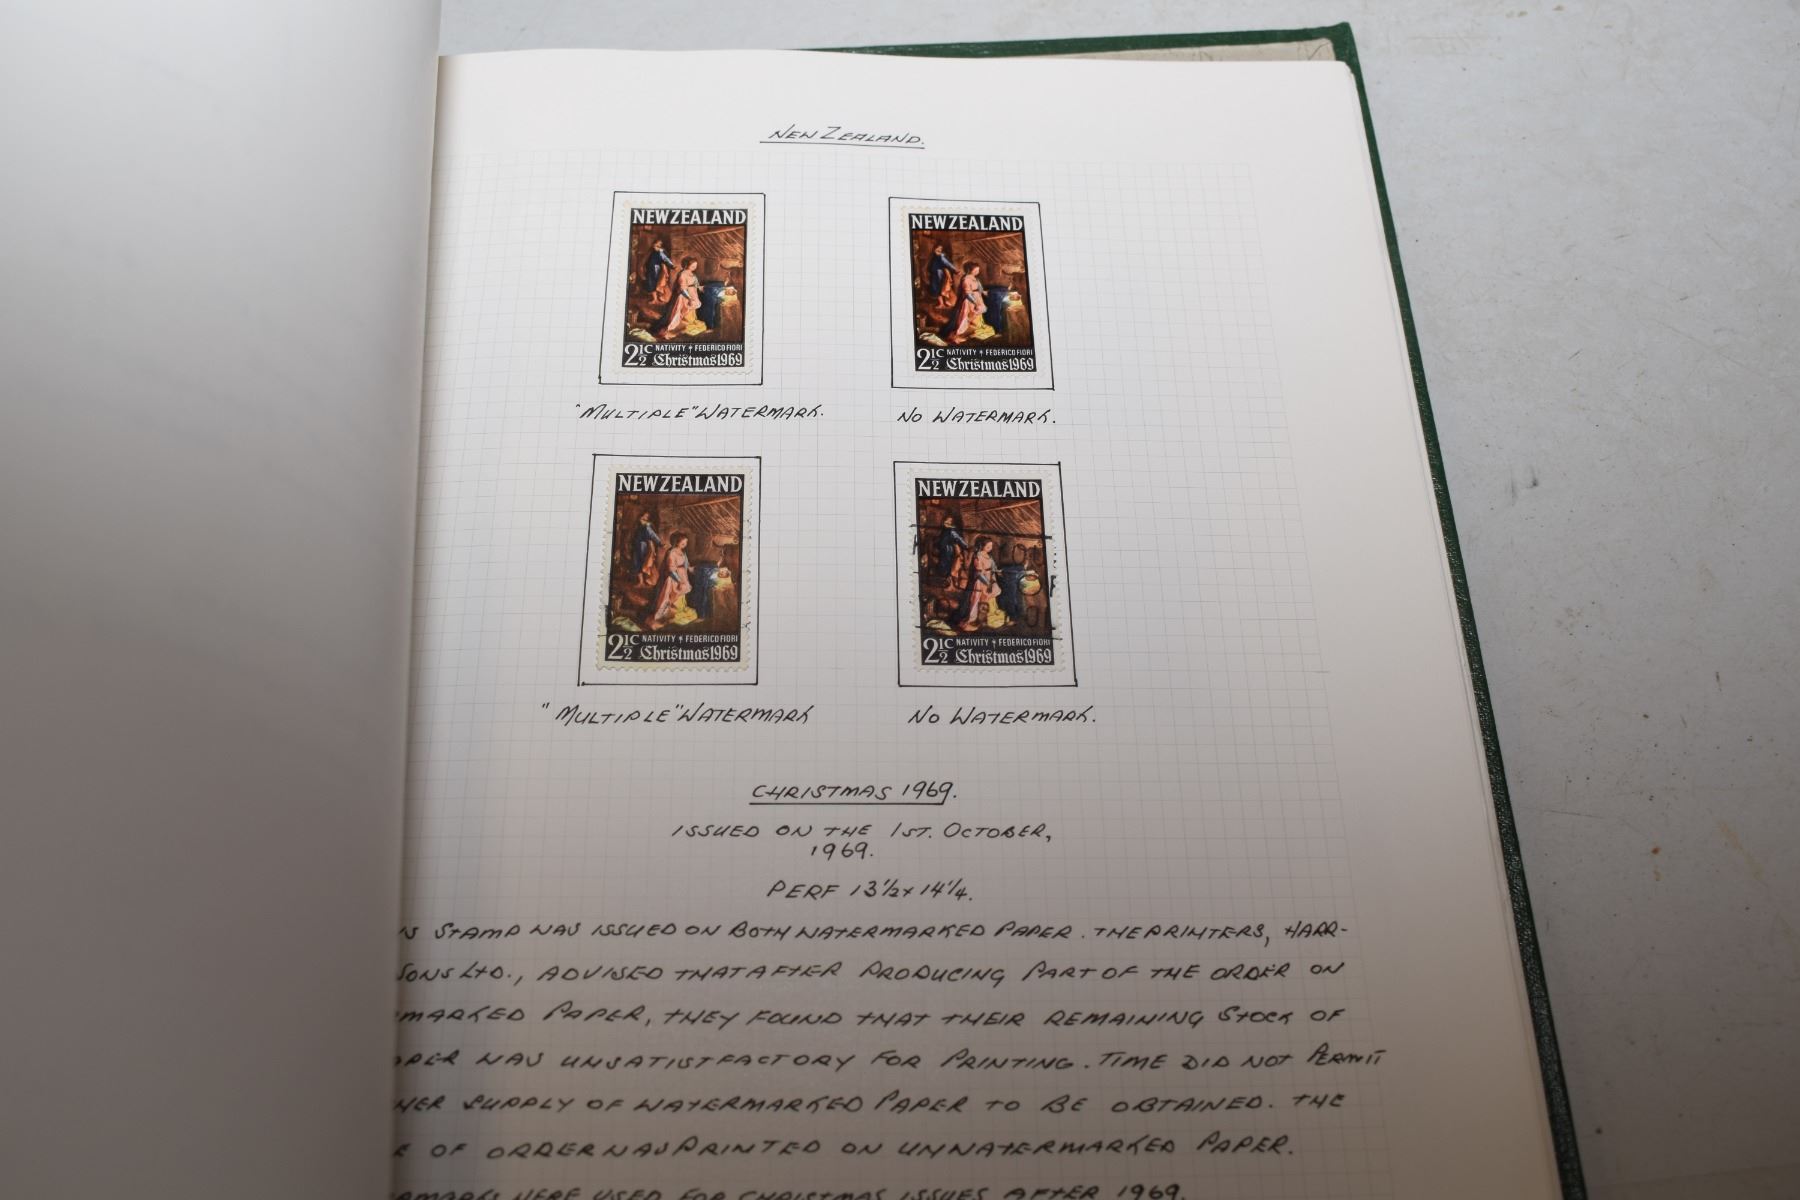 NEW ZEALAND.
NEW ZEALAND
NATIVITY FEDERICO FIORI
2½c Christmas 1969
NEW ZEALAND
NATIVITY FEDERICO FIORI
2½c Christmas 1969
"MULTIPLE" WATERMARK.
NO WATERMARK.
NEW ZEALAND
NATIVITY FEDERICO FIORI
2½c Christmas 1969
NEW ZEALAND
NATIVITY FEDERICO FIORI
2½c Christmas 1969
"MULTIPLE" WATERMARK
NO WATERMARK.
CHRISTMAS 1969.
ISSUED ON THE 1ST. OCTOBER,
1969.
PERF 13½ x 14¼.
STAMP WAS ISSUED ON BOTH WATERMARKED PAPER. THE PRINTERS, HARR-
SONS LTD., ADVISED THAT AFTER PRODUCING PART OF THE ORDER ON
MARKED PAPER, THEY FOUND THAT THEIR REMAINING STOCK OF
WAS UNSATISTFACTORY FOR PRINTING. TIME DID NOT PERMIT
SUPPLY OF WATERMARKED PAPER TO BE OBTAINED. THE
OF ORDER WAS PRINTED ON UNWATERMARKED PAPER.
WERE USED FOR CHRISTMAS ISSUES AFTER 1969.